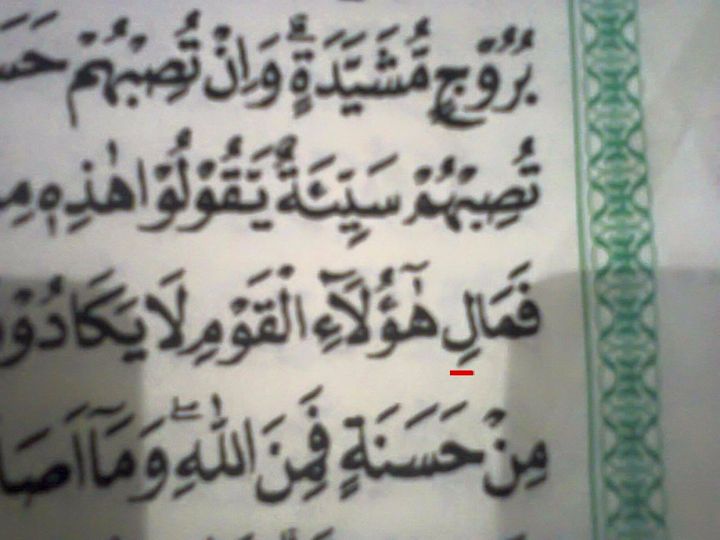 بُرُوْجٍ مُّشَيَّدَةٍ ۗ وَاِنْ تُصِبْهُمْ
تُصِبْهُمْ سَيِّئَةٌ يَّقُوْلُوْا هٰذِهٖ
فَمَالِ هٰٓؤُلَاۤءِ الْقَوْمِ لَا يَكَادُوْ
مِنْ حَسَنَةٍ فَمِنَ اللّٰهِ ۖ وَمَآ اَصَا